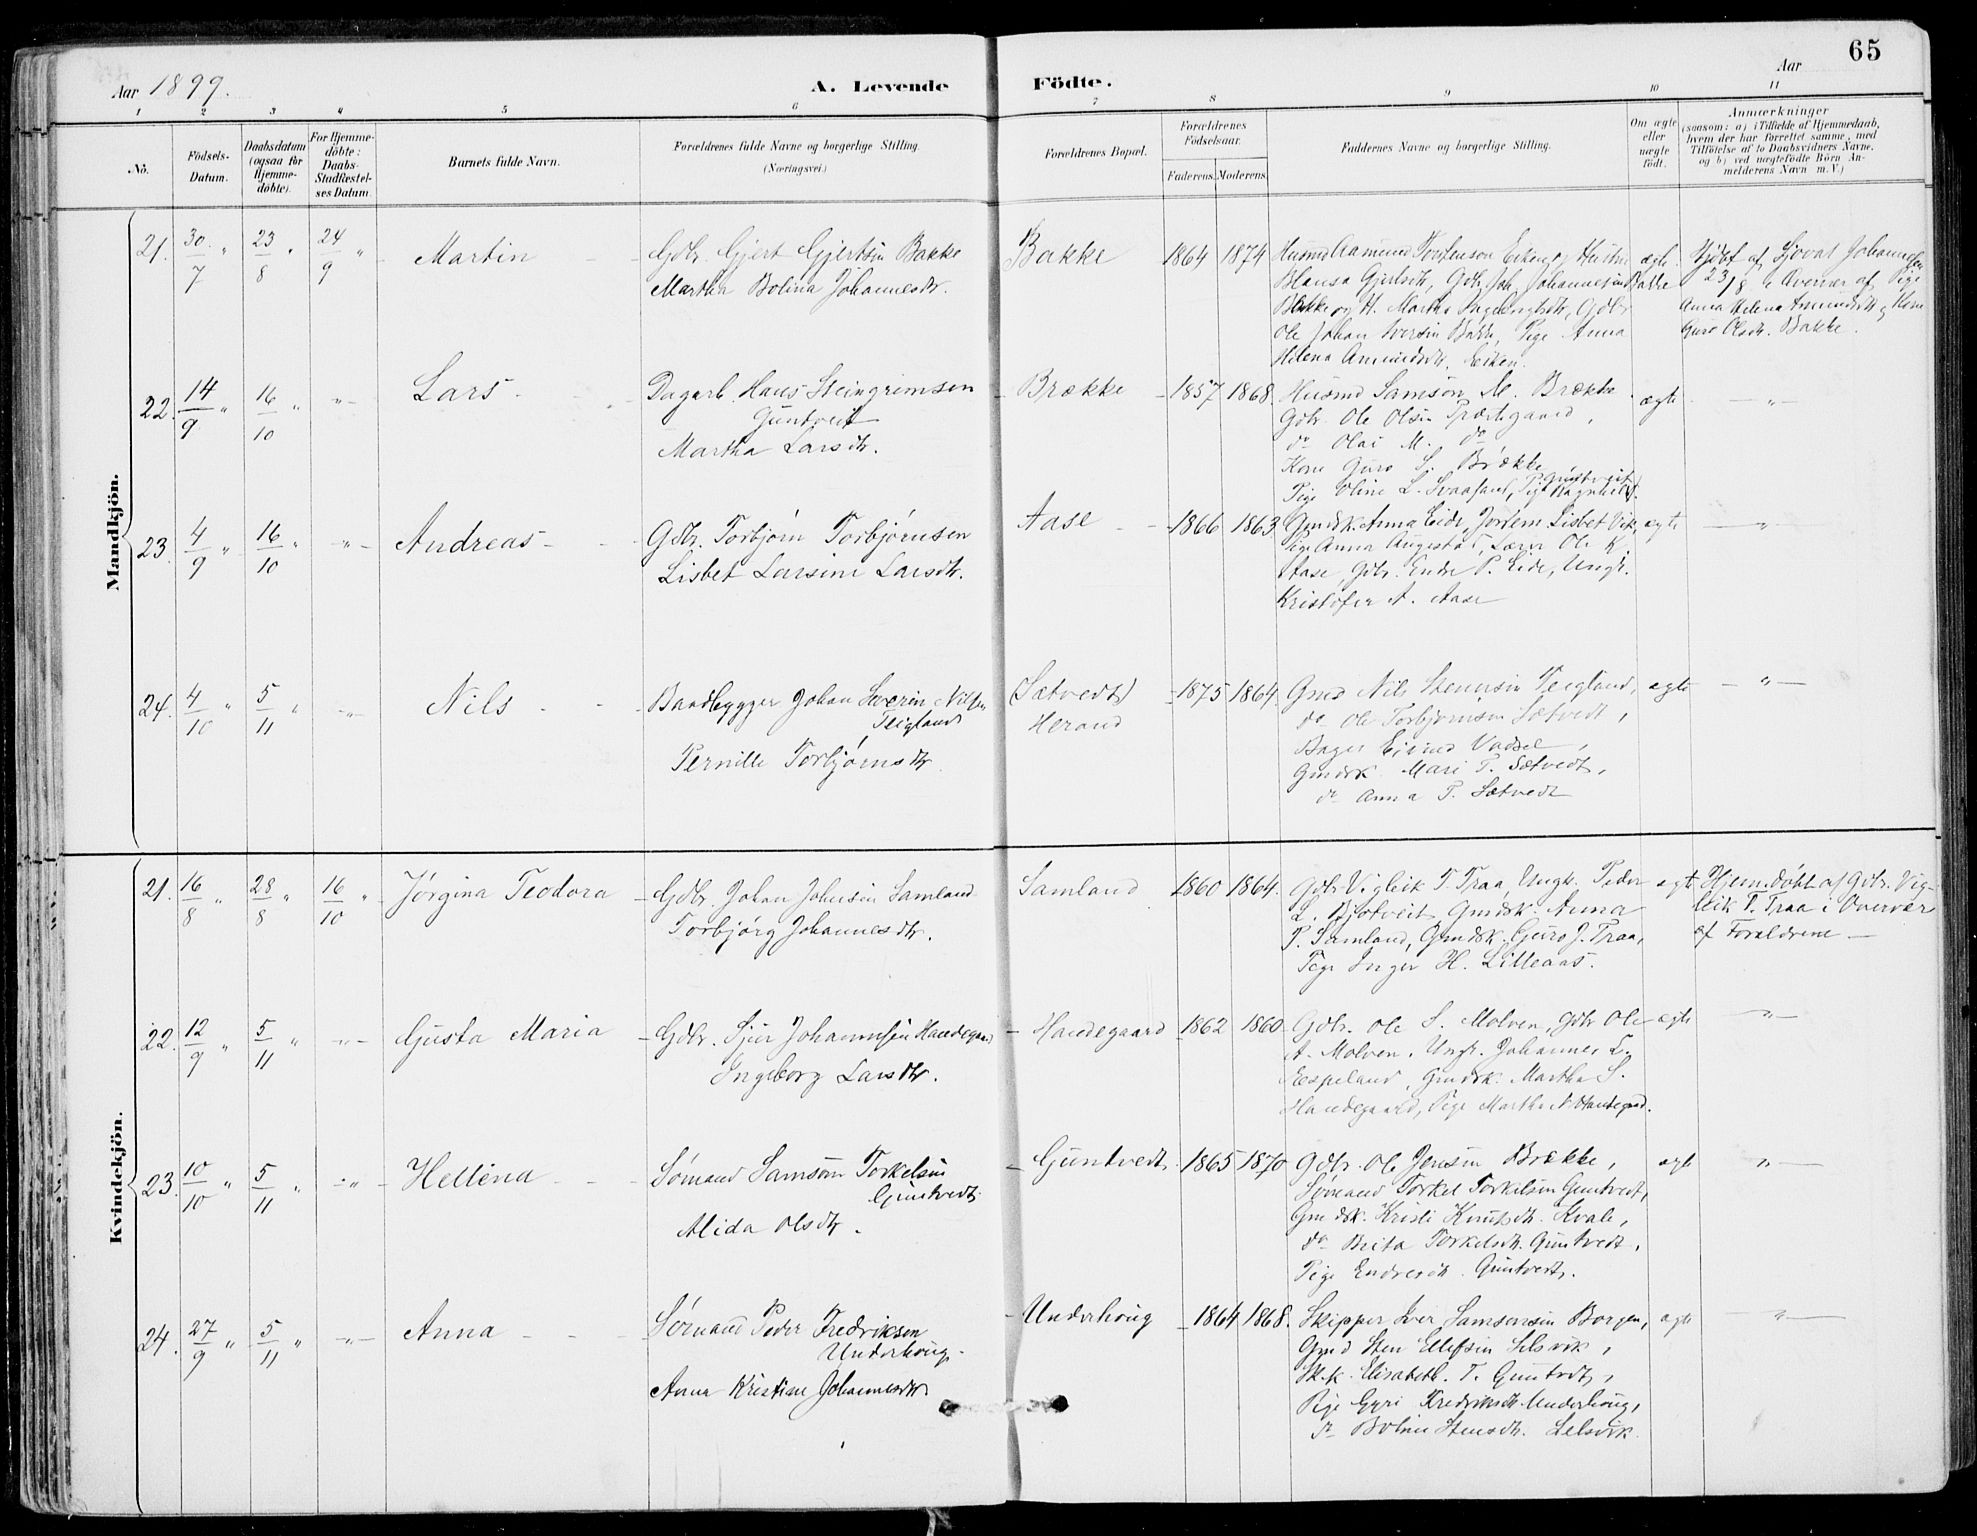 65
Aar 1899.
A. Levende Födte.
Aar
1 2 3 4 5 6 7 8 9 10 11
No.
Födsels-
Datum.
Daabsdatum
(ogsaa for
Hjemme-
döbte).
For Hjemme-
döbte:
Daabs-
Stadfestel-
ses Datum.
Barnets fulde Navn.
Forældrenes fulde Navne og borgerlige Stilling.
(Næringsvei.)
Forældrenes Bopæl.
Forældrenes
Födselsaar.
Faderens. Moderens.
Faddernes Navne og borgerlige Stilling.
Om ægte
eller
uægte
födt.
Anmærkninger
(saasom: a) i Tilfælde af Hjemmedaab,
hvem der har forrettet samme, med
Tilföielse af to Daabsvidners Navne.
og b) ved uægtefödte Börn An-
melderens Navn m. V.)
Mandkjön.
21. 30/7 " 23/8 " 24/9 " Martin
Gdbr. Gjert Gjertsen Bakke
Martha Bolina Johannesdtr.
Bakke 1864 1874
Husmd Aamund Torstenson Eiken, Hustru
Gdbr. Joh. Johannesen Bakke
Bakke og H. Martha Ingebrigtsdtr, Gdbr
Ole Johan Iversen Bakke, Pige Anna
Helena Amundsdtr. Eiken.
ægte
Hjdbt af Sjovat Johannessen
23/8 i Overvær af Pige
Anna Helena Amundsdtr og Kone
Guro Olsdtr. Bakke.
22. 14/9 " 16/10 " " Lars
Dagarb. Hans Steingrimsen
Guntveit
Martha Larsdtr.
Brække 1857 1868.
Husmd Samson M. Brække.
Gdbr. Ole Olsen Præstegaard,
do Olai M. do
Kone Guro S. Brække
Pige Oline L. Svaasand, Pige Ragnhild Guntveit.
ægte "
23. 4/9 " 16/10 " " Andreas
Gdbr. Torbjørn Torbjørnsen
Lisbet Larsine Larsdtr.
Aase 1866 1863
Gmdsk. Anna Eide, Jordem Lisbet Vik,
Pige Anna Augestad, Lærer Ole K.
Aase, Gdbr. Endre P. Eide, Ungk.
Kristofer A. Aase
ægte "
24. 4/10 " 5/11 " " Nils
Baadbygger Johan Severin Nilsen
Teigland
Pernille Torbjørnsdtr.
(Sætvedt)
Herand
1875 1864.
Gmd Nils Stensen Teigland,
do Ole Torbjørnsen Sætvedt,
Bager Eivind Vadsel,
Gmdsk. Mari T. Sætvedt,
do Anna T. Sætvedt
ægte "
Kvindekjön.
21. 16/8 " 28/8 " 16/10 " Jørgina Teodora
Gdbr. Johan Johnsen Samland
Torbjørg Johannesdtr.
Samland 1860 1864.
Gdbr Vigleik T. Traa, Ungk. Peder
L. Bjotveit, Gmdsk. Anna
P. Samland, Gmdsk. Guro J. Traa,
Pige Inger H. Litleaas.
ægte
Hjemdøbt af Gdbr. Vig-
leik T. Traa i Overvær
af Forældrene
22. 12/9 " 5/11 " " Gjusta Maria
Gdbr. Sjur Johannesen Handegaard
Ingeborg Larsdtr.
Handegaard 1862 1860.
Gdbr. Ole S. Molven, Gdbr Ole
A. Molven, Ungk. Johannes L.
Espeland, Gmdsk. Martha S.
Handegaard, Pige Martha N. Handegaard.
ægte "
23. 10/10 " 5/11 " " Hellena
Sømand Samson Torkelsen
Guntvedt
Alida Olsdtr.
Guntvedt 1865 1870
Gdbr. Ole Jensen Brække,
Sømand Torkel Torkelsen Guntvedt,
Gmdsk. Kristi Knutsdtr. Kvale,
do Brita Torkelsdtr. Guntvedt,
Pige Endresdtr. Guntvedt.
ægte "
24. 27/9 " 5/11 " " Anna
Sømand Peder Fredriksen
Underhoug.
Anna Kristine Johannesdtr.
Underhoug 1864 1868.
Skipper Iver Samsonsen Borgen,
Gmd Sten Ellefsen Selsvik,
Sk.k. Elisabeth T. Guntvedt,
Pige Gyri Fredriksdtr Underhoug,
do Boline Stensdtr. Selsvik
ægte "